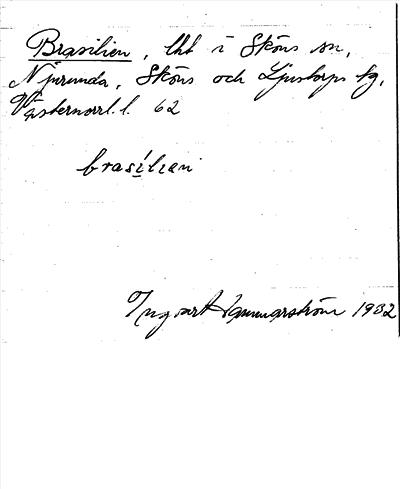 Brasilien, lht i Sköns sn,
Njurunda, Sköns och Ljustorps tg,
Västernorrl. l. 62
brasi̱lien
Ingvart Hammarström 1932